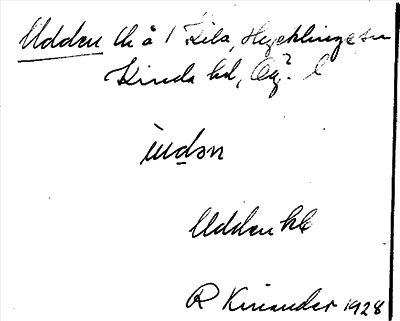 Udden th å 1 Kila, Hycklinge sn
Kinda hd, Ög.
ùdən
Udden hb
R Kinander 1928